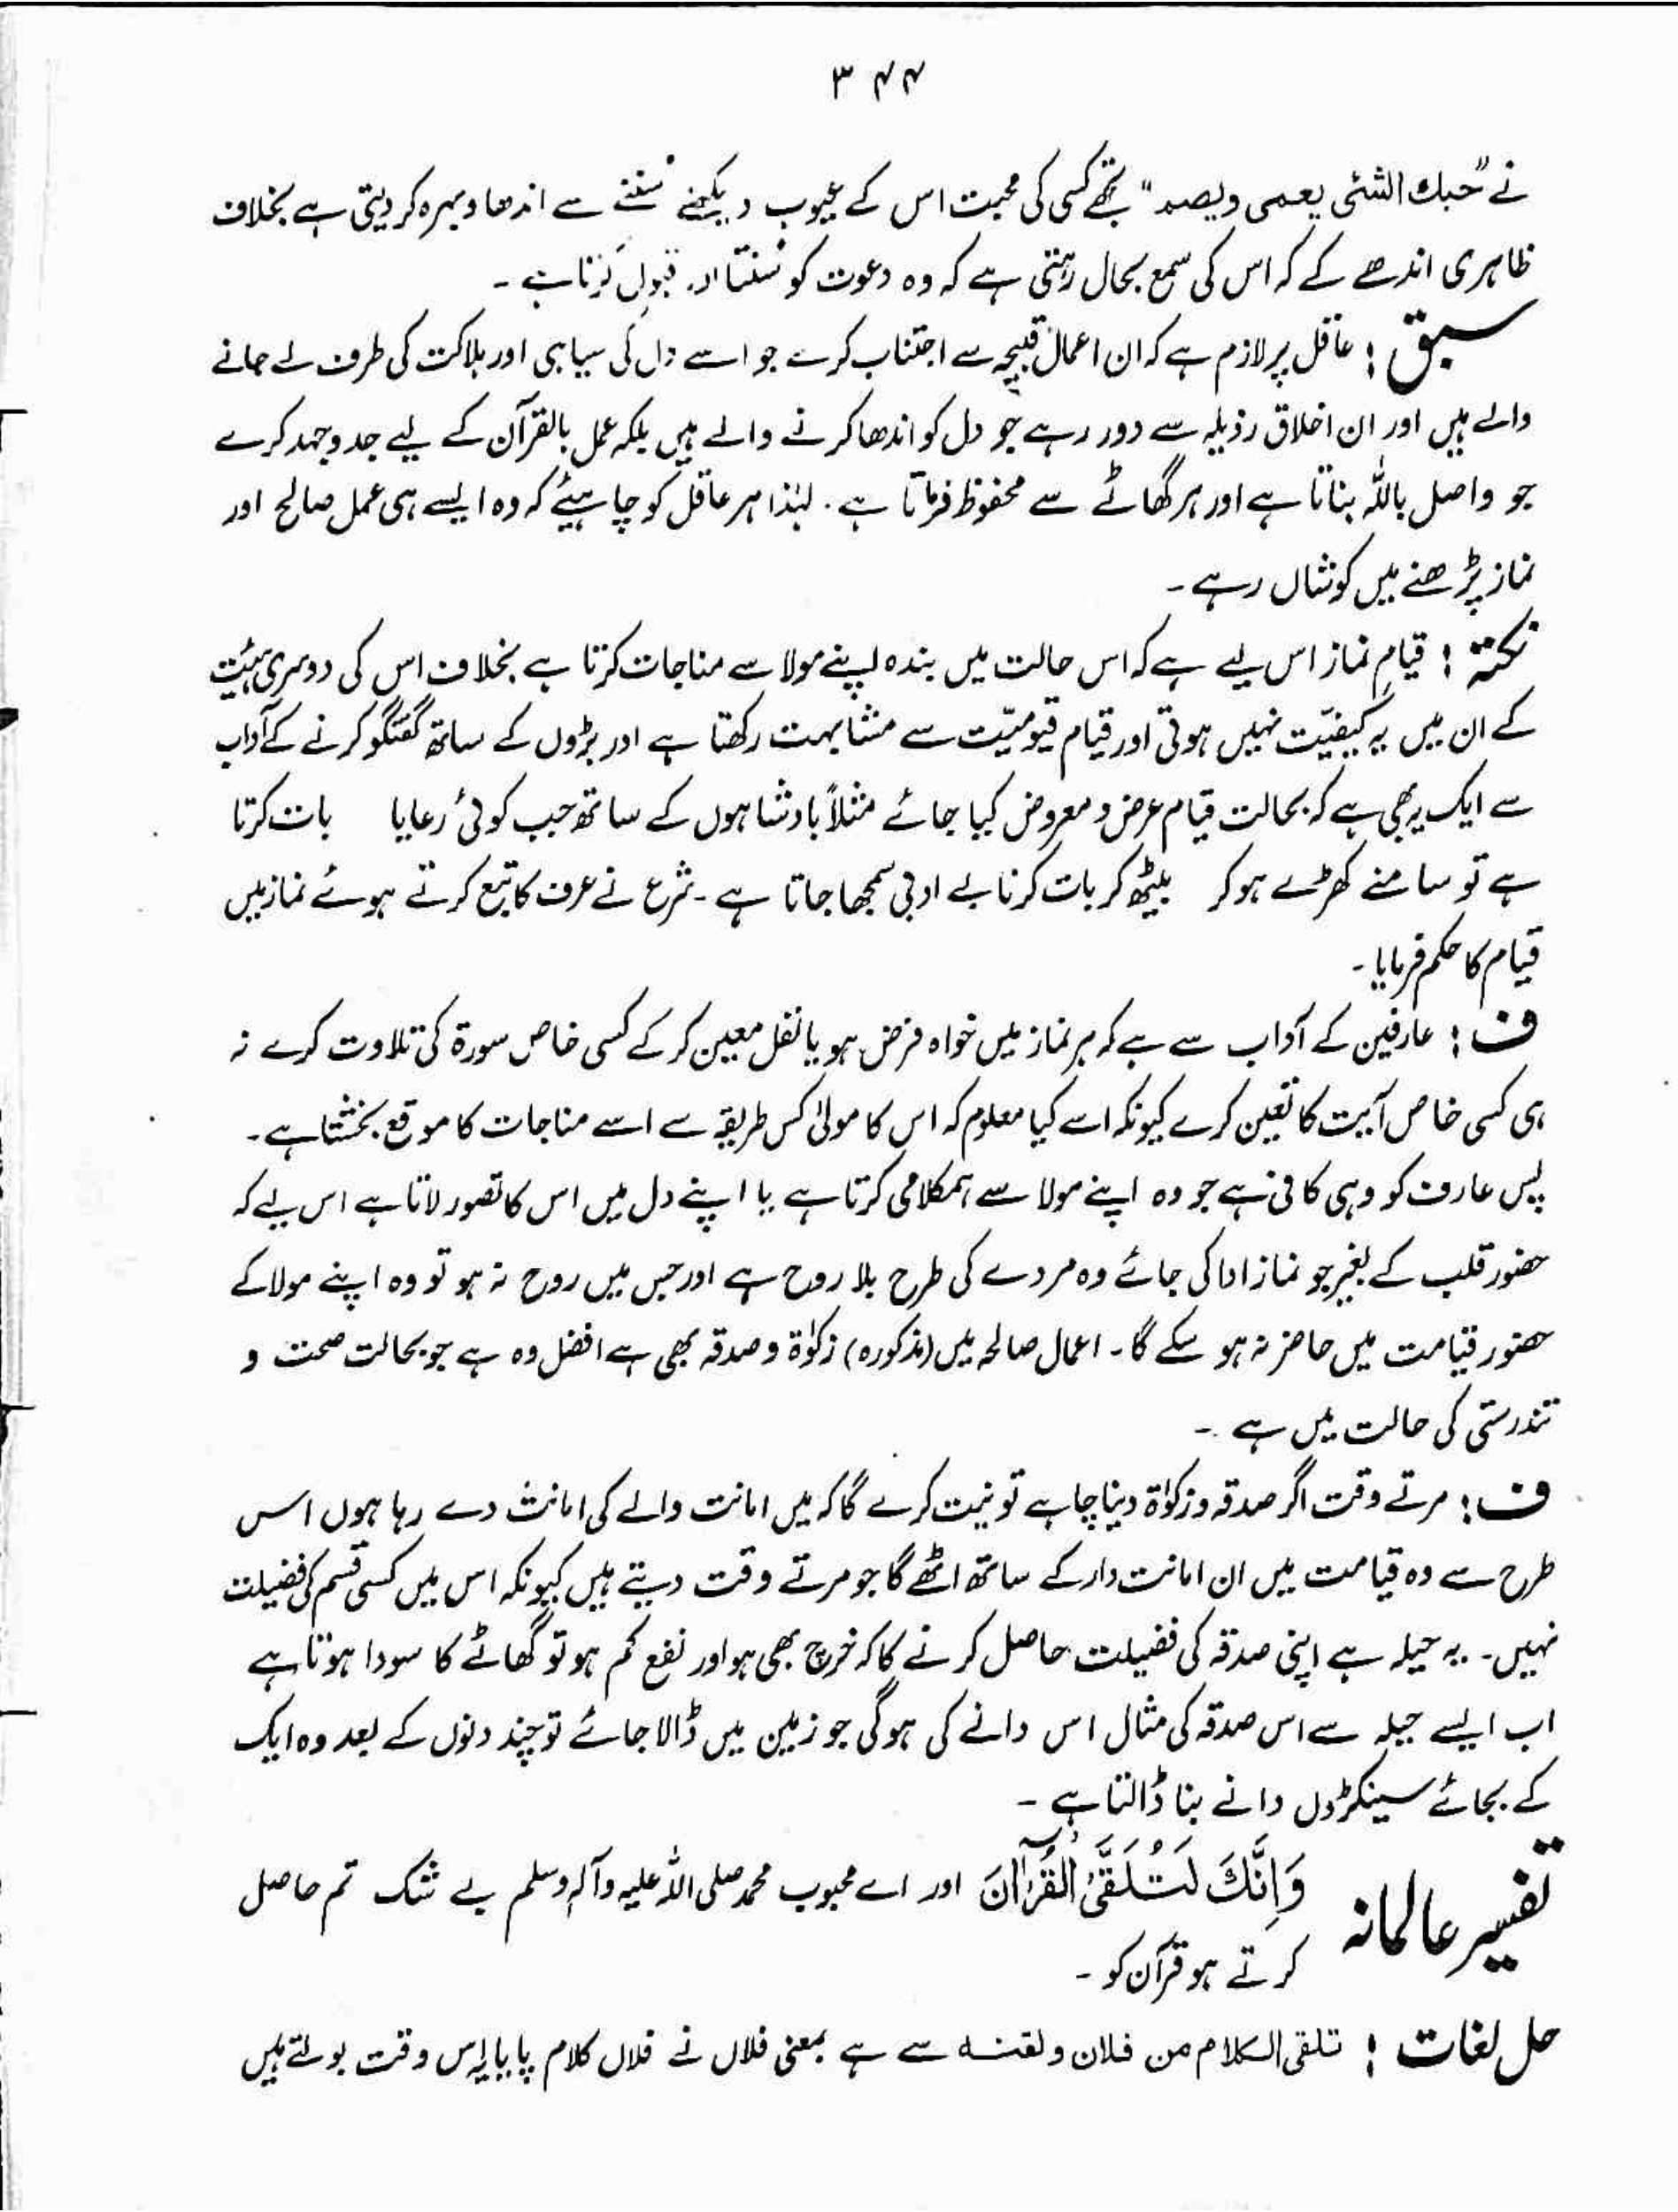 ۳۴۴
نے "حبك الشئی یعمی ویصم" تجھے کسی کی محبت اس کے عیوب دیکھنے سننے سے اندھا و بہرہ کر دیتی ہے بخلاف
ظاہری اندھے کے کہ اس کی سمع بحال رہتی ہے کہ وہ دعوت کو سنتا اور قبول کرتا ہے ۔
سبق : عاقل پر لازم ہے کہ ان اعمال قبیحہ سے اجتناب کرے جو اسے دل کی سیاہی اور ہلاکت کی طرف لے جانے
والے ہیں اور ان اخلاق رذیلہ سے دور رہے جو دل کو اندھا کرنے والے ہیں بلکہ عمل بالقرآن کے لیے جدوجہد کرے
جو واصل باللہ بناتا ہے اور ہر گھاٹے سے محفوظ فرماتا ہے ۔ لہٰذا ہر عاقل کو چاہیئے کہ وہ ایسے ہی عمل صالح اور
نماز پڑھنے میں کوشاں رہے ۔
نکتہ : قیام نماز اس لیے ہے کہ اس حالت میں بندہ اپنے مولا سے مناجات کرتا ہے بخلاف اس کی دوسری ہیئت
کے ان میں یہ کیفیّت نہیں ہوتی اور قیام قیومیّت سے مشابہت رکھتا ہے اور بڑوں کے ساتھ گفتگو کرنے کے آداب
سے ایک یہ بھی ہے کہ بحالت قیام عرض و معروض کیا جائے مثلاً بادشاہوں کے ساتھ جب کوئی رعایا بات کرتا
ہے تو سامنے کھڑے ہو کر بیٹھ کر بات کرنا بے ادبی سمجھا جاتا ہے ۔ شرع نے عرف کا تتبع کرتے ہوئے نماز میں
قیام کا حکم فرمایا ۔
ف : عارفین کے آداب سے ہے کہ ہر نماز میں خواہ فرض ہو یا نفل معین کر کے کسی خاص سورۃ کی تلاوت کرے نہ
ہی کسی خاص آیت کا تعین کرے کیونکہ اسے کیا معلوم کہ اس کا مولیٰ کس طریقہ سے اسے مناجات کا موقع بخشتا ہے ۔
پس عارف کو وہی کافی ہے جو وہ اپنے مولا سے ہمکلامی کرتا ہے یا اپنے دل میں اس کا تصور لاتا ہے اس لیے کہ
حضور قلب کے بغیر جو نماز ادا کی جائے وہ مردے کی طرح بلا روح ہے اور جس میں روح نہ ہو تو وہ اپنے مولا کے
حضور قیامت میں حاضر نہ ہو سکے گا ۔ اعمال صالحہ میں (مذکورہ) زکوٰۃ و صدقہ بھی ہے افضل وہ ہے جو بحالت صحت و
تندرستی کی حالت میں ہے ۔
ف : مرتے وقت اگر صدقہ و زکوٰۃ دینا چاہے تو نیت کرے گا کہ میں امانت والے کی امانت دے رہا ہوں اس
طرح سے وہ قیامت میں ان امانت دار کے ساتھ اٹھے گا جو مرتے وقت دیتے ہیں کیونکہ اس میں کسی قسم کی فضیلت
نہیں ۔ یہ حیلہ ہے اپنی صدقہ کی فضیلت حاصل کرنے کا کہ خرچ بھی ہو اور نفع کم ہو تو گھاٹے کا سودا ہوتا ہے
اب ایسے حیلہ سے اس صدقہ کی مثال اس دانے کی ہوگی جو زمین میں ڈالا جائے تو چند دنوں کے بعد وہ ایک
کے بجائے سینکڑوں دانے بنا ڈالتا ہے ۔
تفسیر عالمانہ وَاِنَّكَ لَتُلَقَّى الْقُرْاٰنَ اور اے محبوب محمد صلی اللہ علیہ وآلہ وسلم بے شک تم حاصل
کرتے ہو قرآن کو ۔
حل لغات : تلقی الکلام من فلان ولقنه سے ہے بمعنی فلاں نے فلاں کلام پایا یہ اس وقت بولتے ہیں